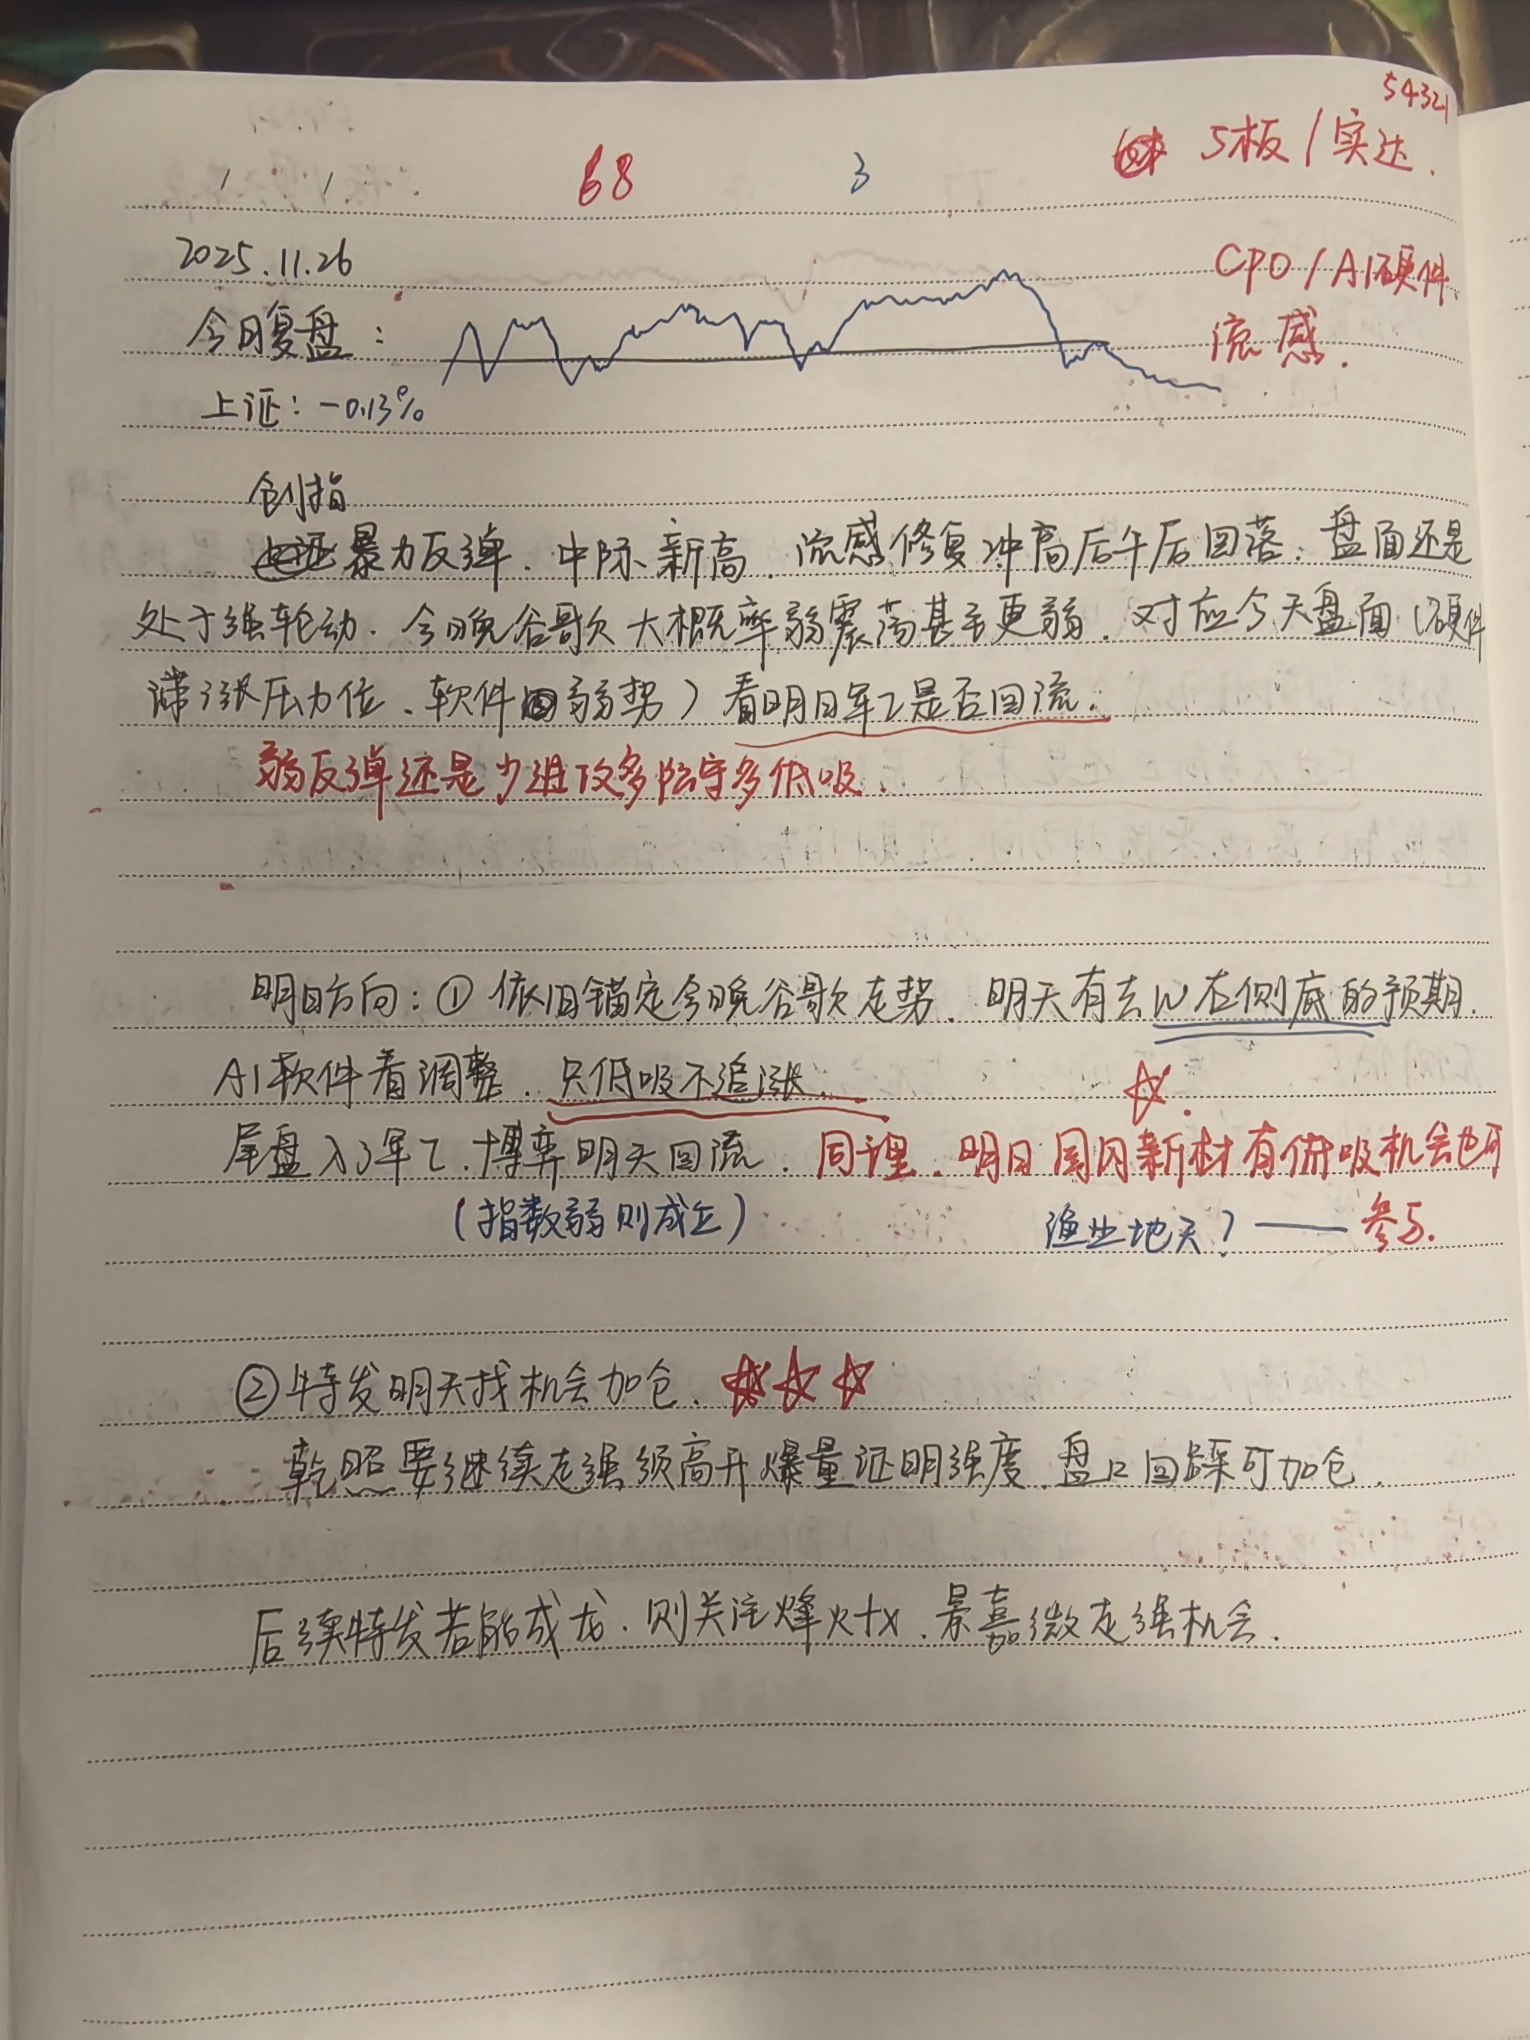 54321
68 3 5板/实达.
2025.11.26
CPO/AI硬件
今日复盘:
流感.
上证:-0.13%
创指
暴力反弹.中际新高.流感修复冲高后午后回落.盘面还是
处于强轮动.今日晚谷歌大概率弱震荡甚至更弱.对应今天盘面(硬件
滞涨压力位、软件弱势)看明日军工是否回流.
弱反弹还是少进攻多防守多低吸.
明日方向:①依旧锚定今晚谷歌走势.明天有去W右侧底的预期.
AI软件看调整.只低吸不追涨.
尾盘入了军工.博弈明天回流.同理.明日国风新材有低吸机会也可
(指数弱则成立) 渔业地天?——参与.
②特发明天找机会加仓.
乾照要继续走强须高开爆量证明强度.盘口回踩可加仓.
后续特发若能成龙.则关注烽火tx、景嘉微走强机会.